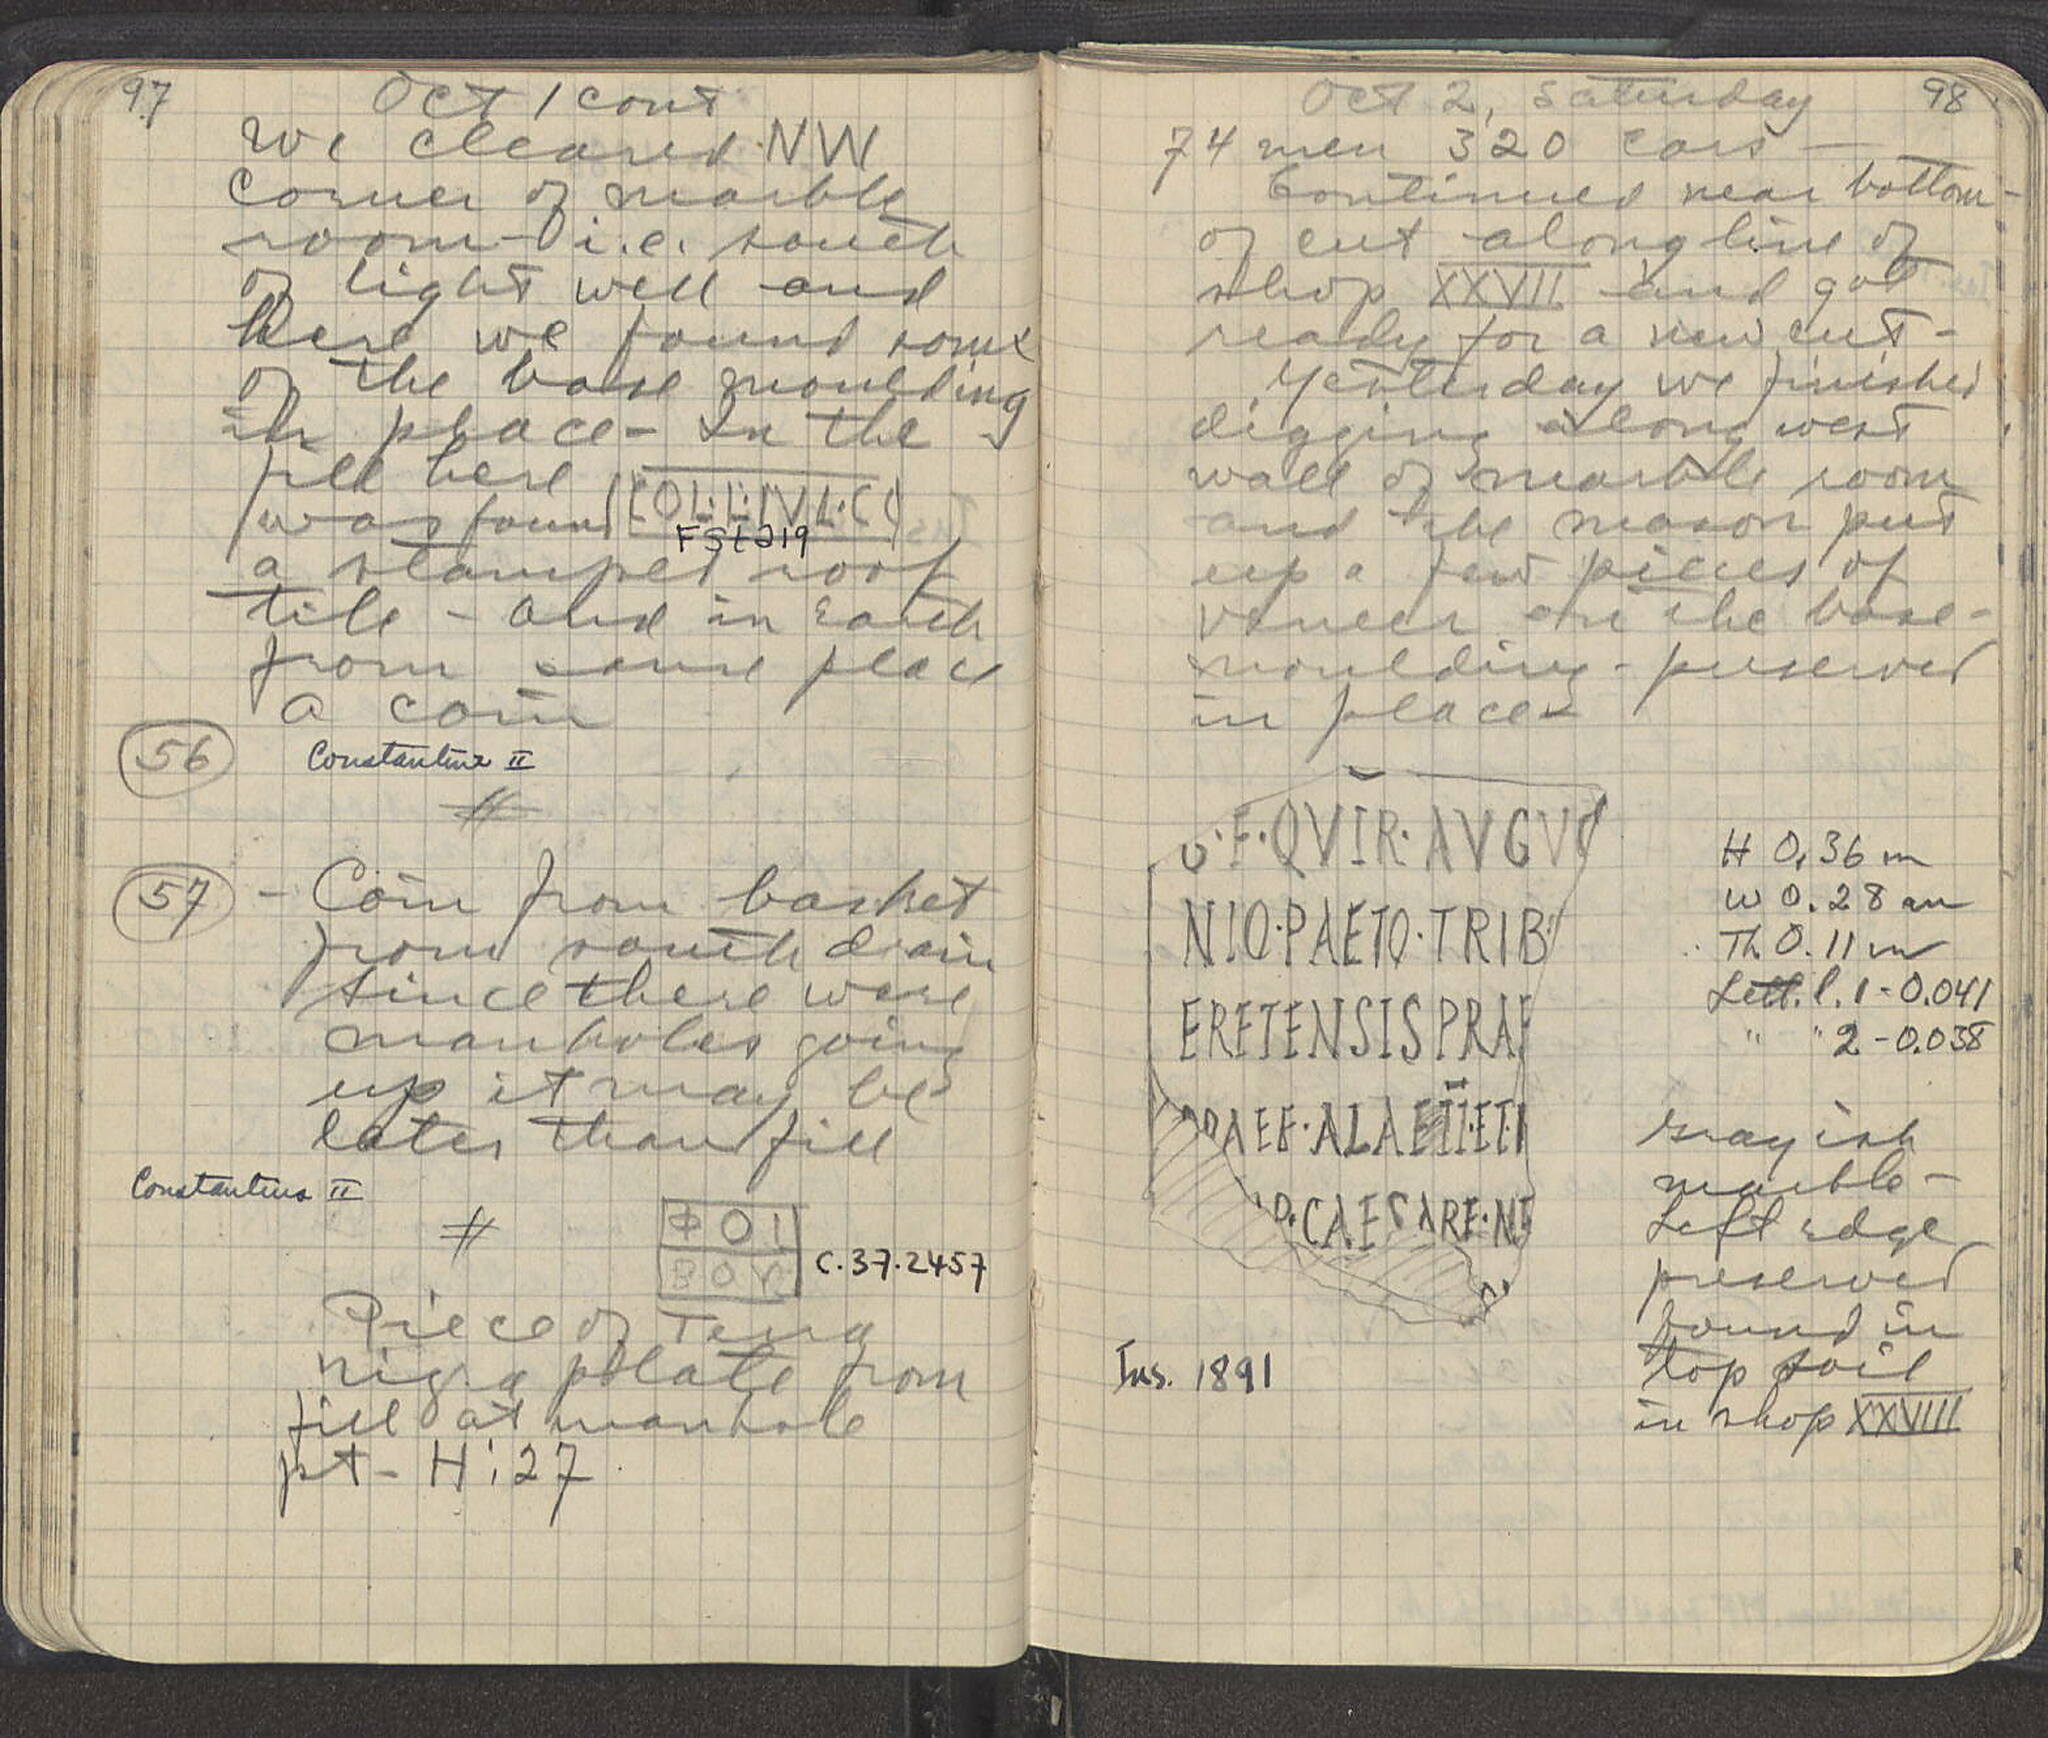 97
Oct 1 cont
We cleared NW
corner of marble
room - i.e. south
of light well and
here we found some
of the base moulding
in place - In the
fill here
was found COL·L·IVL·CO
FST219
a stamped roof
tile - and in earth
from same place
a coin
56
Constantine II
#
57 - Coin from basket
from south drain
since there were
manholes going
up it may be
later than fill
Constantius II
#
ΦΟΙ
ΒΟΥ
C.37.2457
Piece of Terra
nigra plate from
fill at manhole
pt - H:27
98
Oct 2, Saturday
74 men 320 cars -
Continued near bottom
of cut along line of
shop XXVII and got
ready for a new cut -
Yesterday we finished
digging along west
wall of marble room
and the mason put
up a few pieces of
veneer on the base-
moulding - preserved
in place -
·F·QVIR·AVGV
NIO·PAETO·TRIB
ERETENSIS PRAE
PRAEF·ALAE II·ET·
P·CAESARE·NE
H 0.36 m
W 0.28 m
Th 0.11 m
Lett. l. 1 - 0.041
" " 2 - 0.038
Grayish
marble -
Left edge
preserved
found in
top soil
in shop XXVIII
Ins. 1891